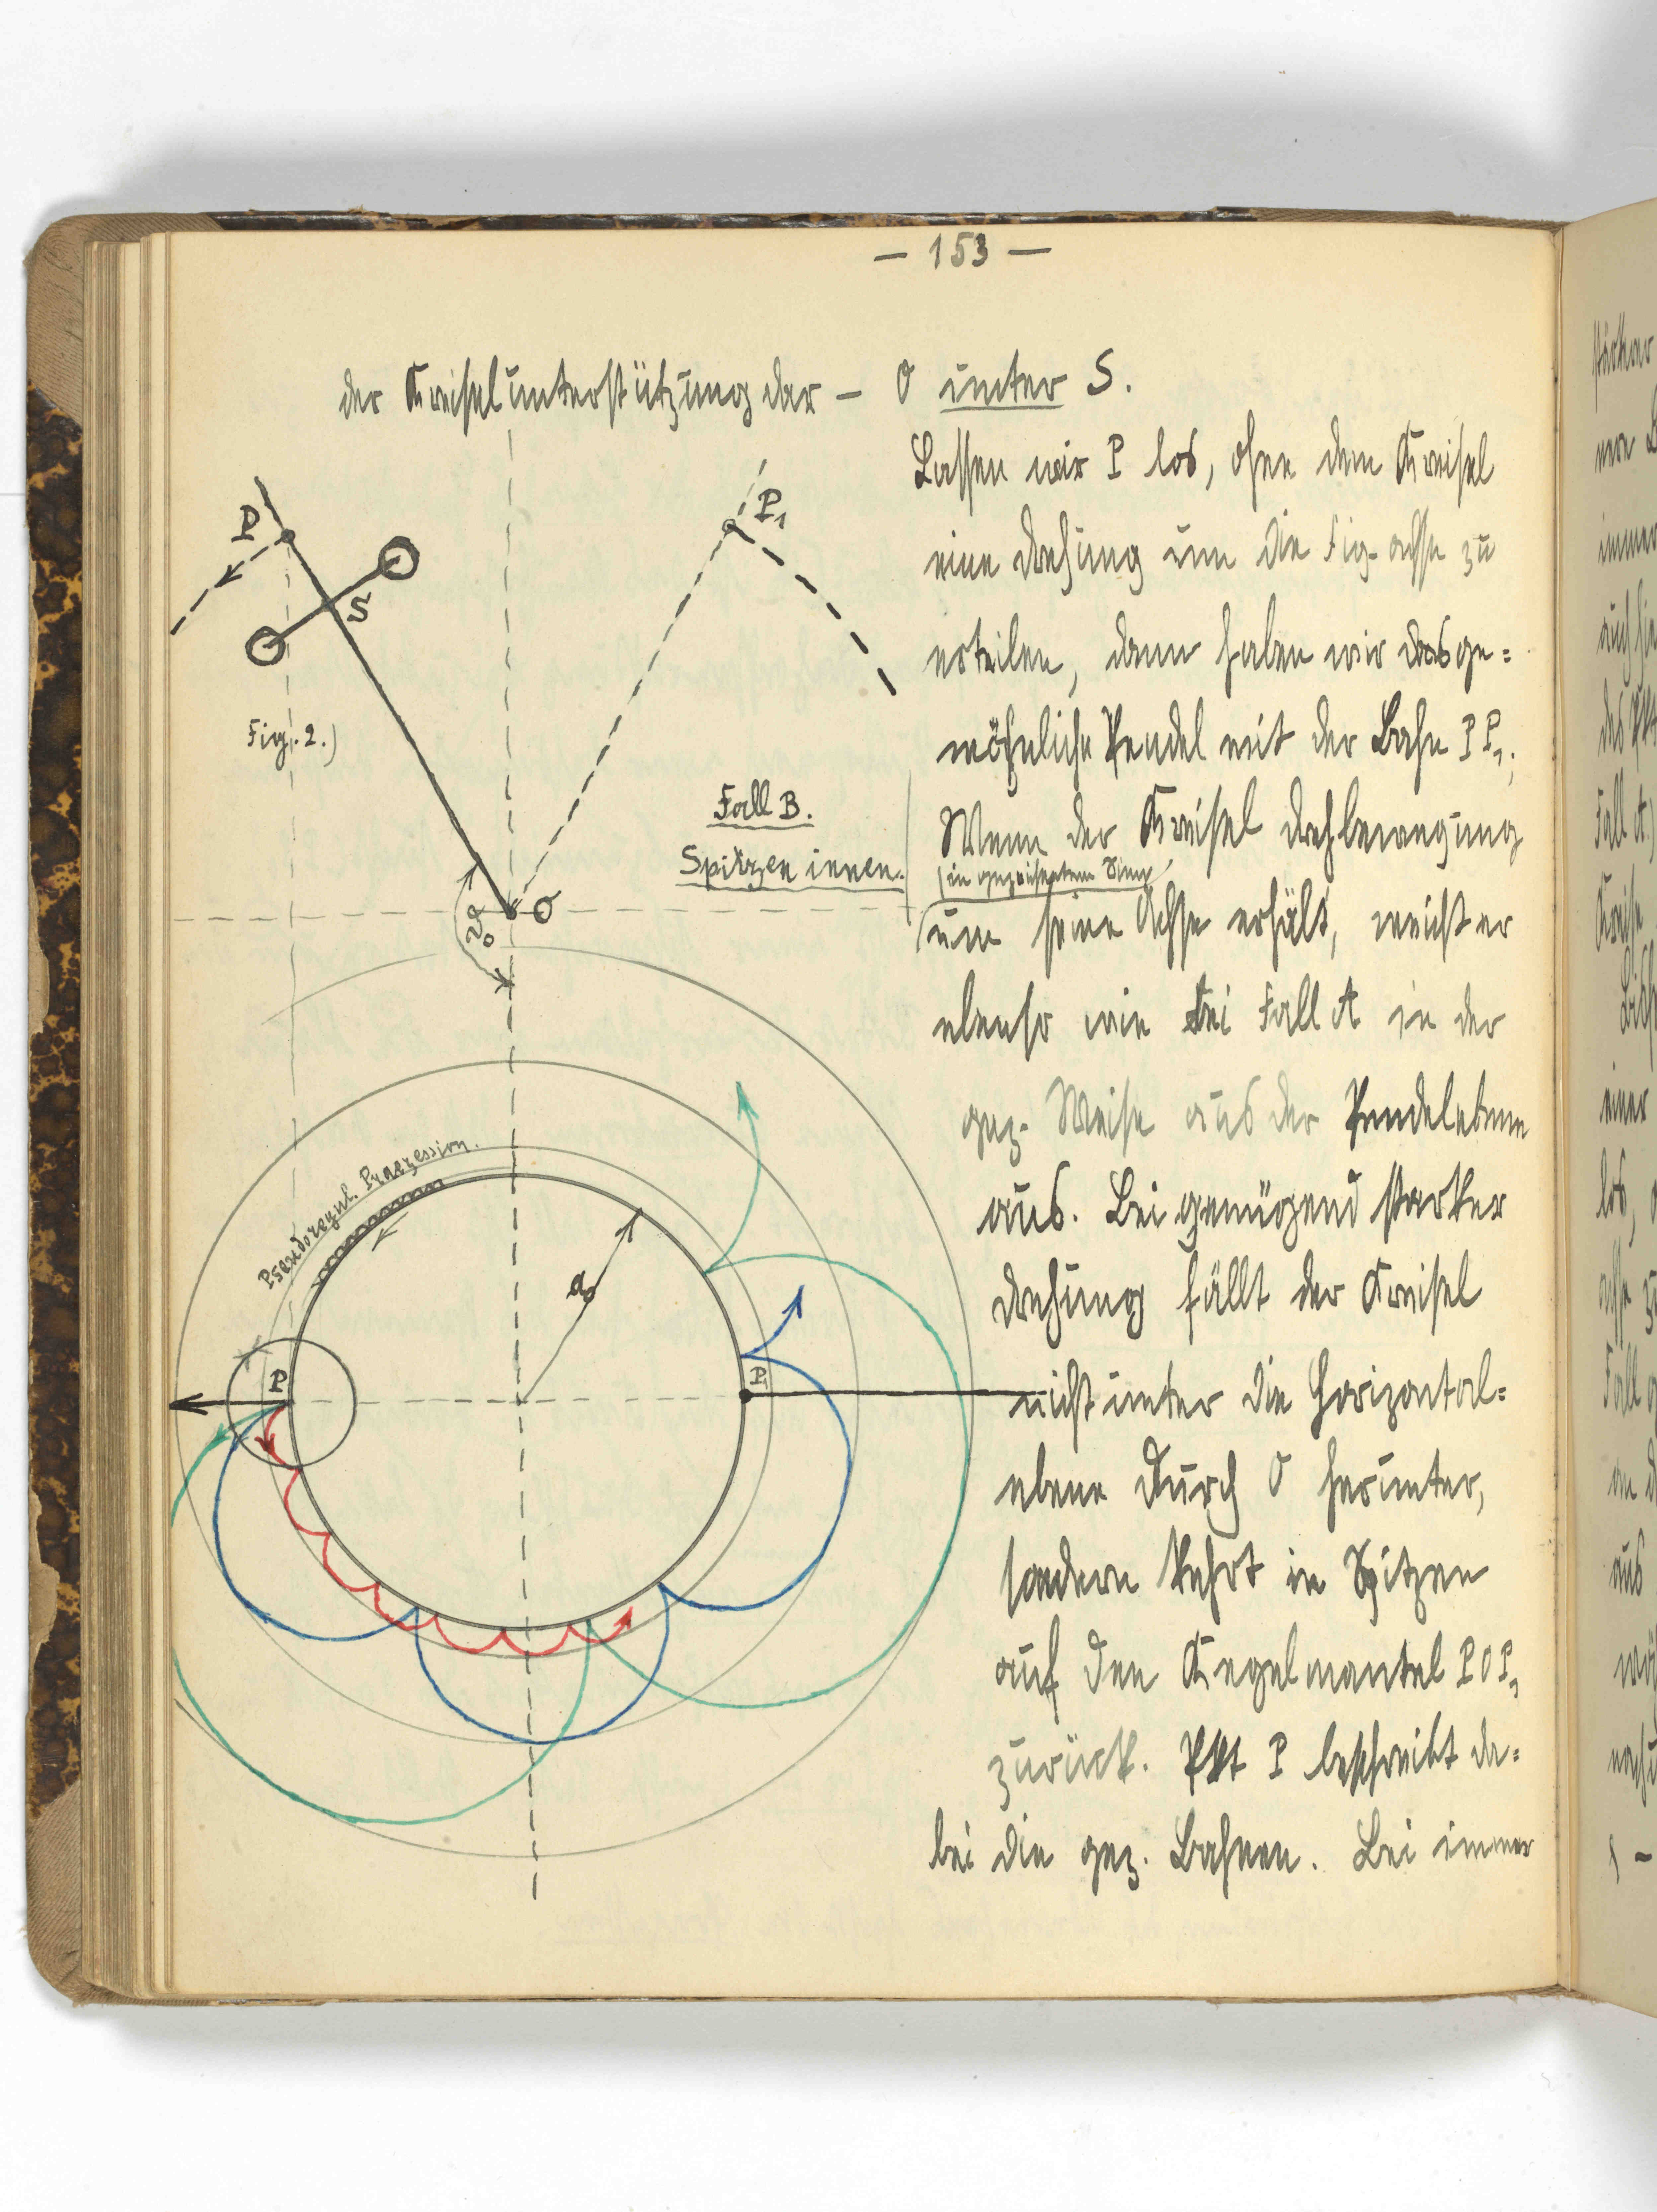 — 153 —
der Kreiselunterstützung dar – O unter S.
Lassen wir P los, ohne dem Kreisel
eine Drehung um die Fig. achse zu
erteilen, dann haben wir das ge=
wöhnliche Pendel mit der Bahn P P₁;
Wenn der Kreisel Drehbewegung
(in gezeichnetem Sinne)
um seine Achse erhält, weicht er
ebenso wie bei Fall A in der
gez. Weise aus der Pendelebene
aus. Bei genügend starker
Drehung fällt der Kreisel
nicht unter die Horizontal=
ebene durch O herunter,
sondern kehrt in Spitzen
auf den Kegelmantel P O P₁
zurück. Pkt P beschreibt da=
bei die gez. Bahnen. Bei immer
P
P₁
S
Fig. 2.)
Fall B.
Spitzen innen.
O
ϑ₀
Pseudoregul. Praezession.
a₀
P
P₁